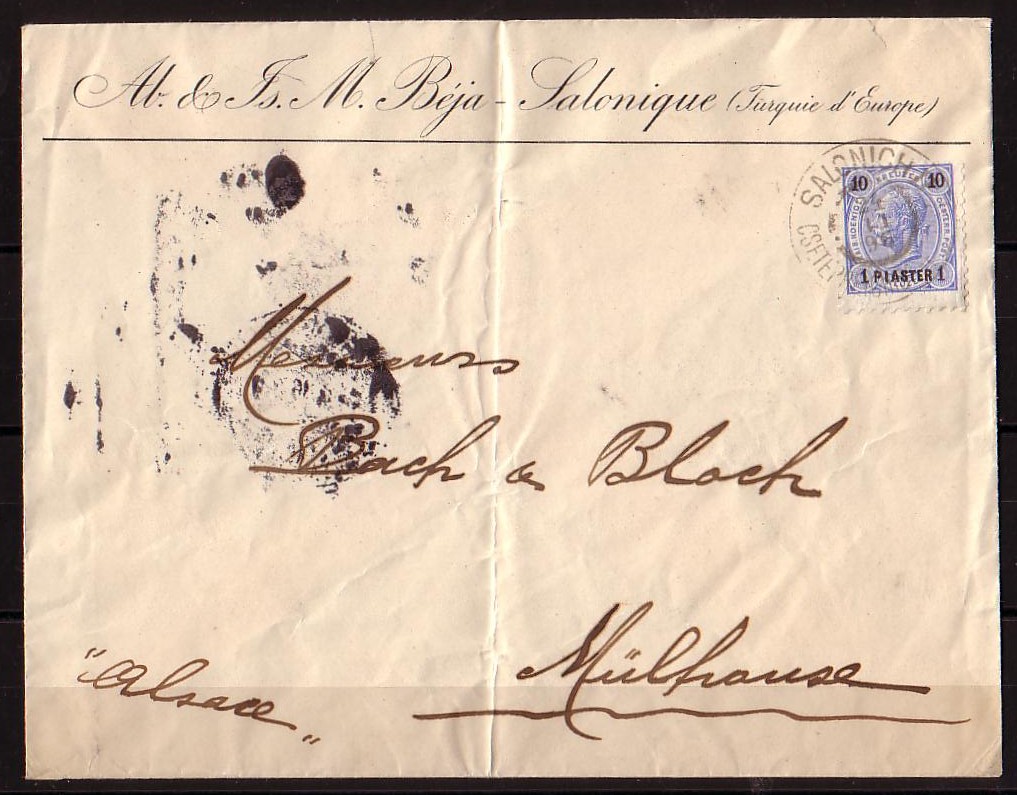 Ab. & Is. M. Béja - Salonique (Turquie d'Europe)
SALONICH
10 KREUZER 10
1 PIASTER 1
Messieurs
Bach & Bloch
Mülhouse
"Alsace"